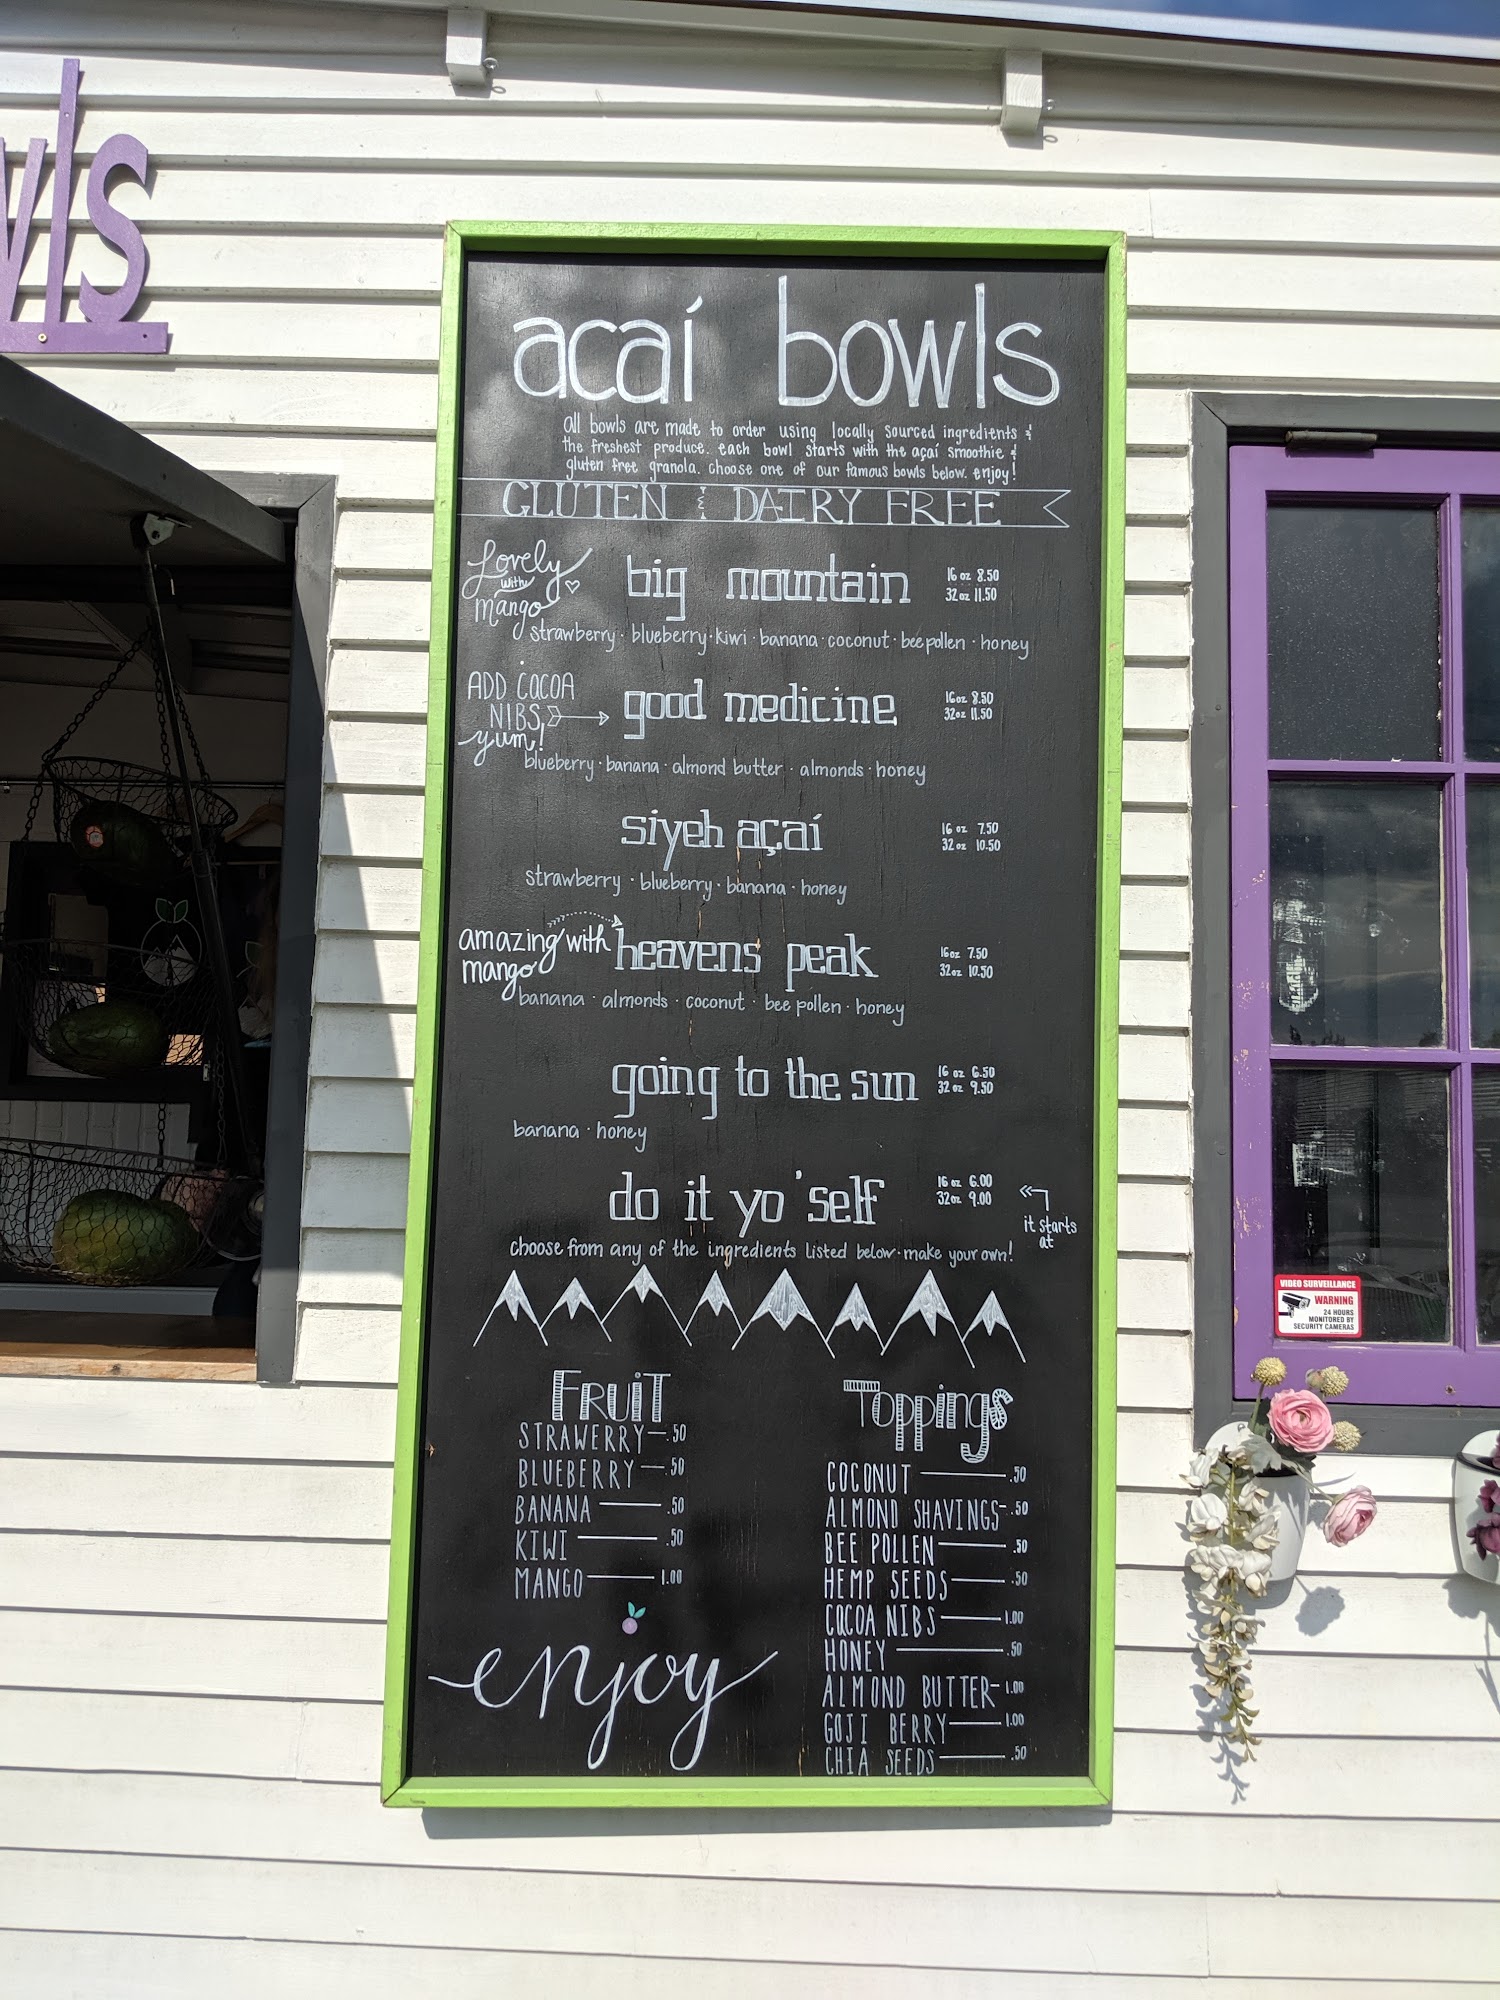 wls
acaí bowls
all bowls are made to order using locally sourced ingredients &
the freshest produce. each bowl starts with the açaí smoothie &
gluten free granola. choose one of our famous bowls below. enjoy!
GLUTEN & DAIRY FREE
Lovely
with
mango
big mountain
16 oz 8.50
32 oz 11.50
strawberry · blueberry · kiwi · banana · coconut · bee pollen · honey
ADD CACOA
NIBS,
yum!
good medicine
16 oz 8.50
32 oz 11.50
blueberry · banana · almond butter · almonds · honey
siyeh açaí
16 oz 7.50
32 oz 10.50
strawberry · blueberry · banana · honey
amazing with
mango
heavens peak
16 oz 7.50
32 oz 10.50
banana · almonds · coconut · bee pollen · honey
going to the sun
16 oz 6.50
32 oz 9.50
banana · honey
do it yo'self
16 oz 6.00
32 oz 9.00
it starts
at
choose from any of the ingredients listed below · make your own!
FRUIT
STRAWERRY — .50
BLUEBERRY — .50
BANANA — .50
KIWI — .50
MANGO — 1.00
enjoy
Toppings
COCONUT — .50
ALMOND SHAVINGS - .50
BEE POLLEN — .50
HEMP SEEDS — .50
CACOA NIBS — 1.00
HONEY — .50
ALMOND BUTTER - 1.00
GOJI BERRY — 1.00
CHIA SEEDS — .50
VIDEO SURVEILLANCE
WARNING
24 HOURS
MONITORED BY
SECURITY CAMERAS